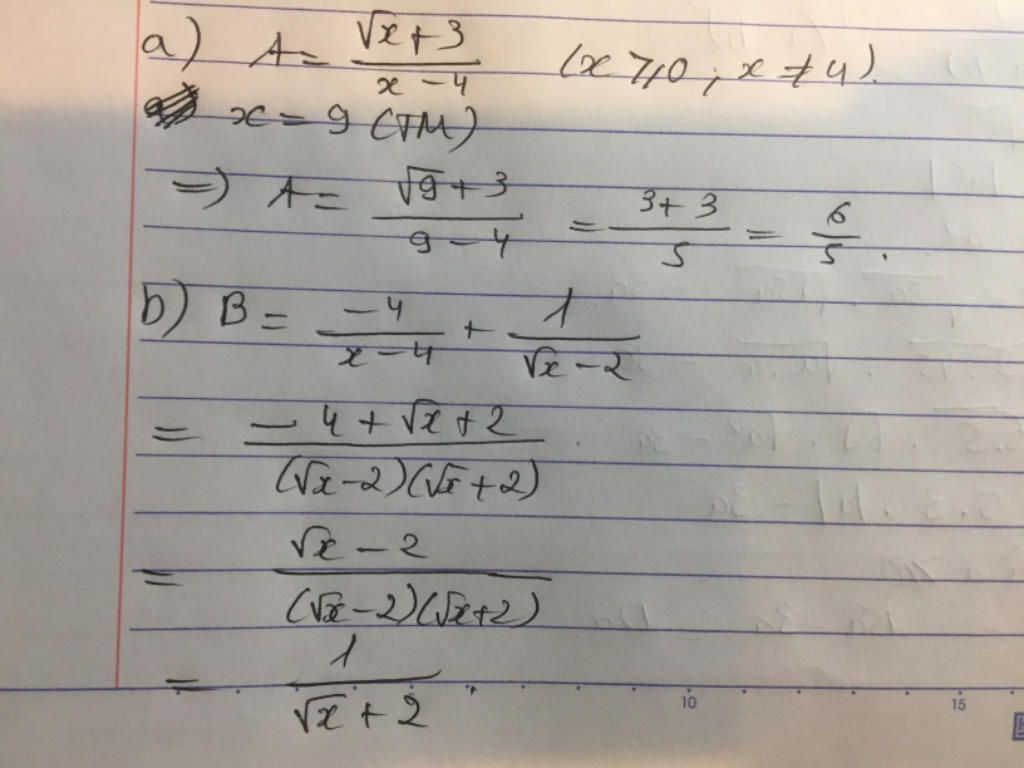 a) A = (√x + 3)/(x - 4) (x ⩾ 0 ; x ≠ 4).
x = 9 (TM)
=) A = (√9 + 3)/(9 - 4) = (3 + 3)/5 = 6/5.
b) B = (-4)/(x - 4) + 1/(√x - 2)
= (-4 + √x + 2)/((√x - 2)(√x + 2)).
= (√x - 2)/((√x - 2)(√x + 2))
= 1/(√x + 2)
10 15